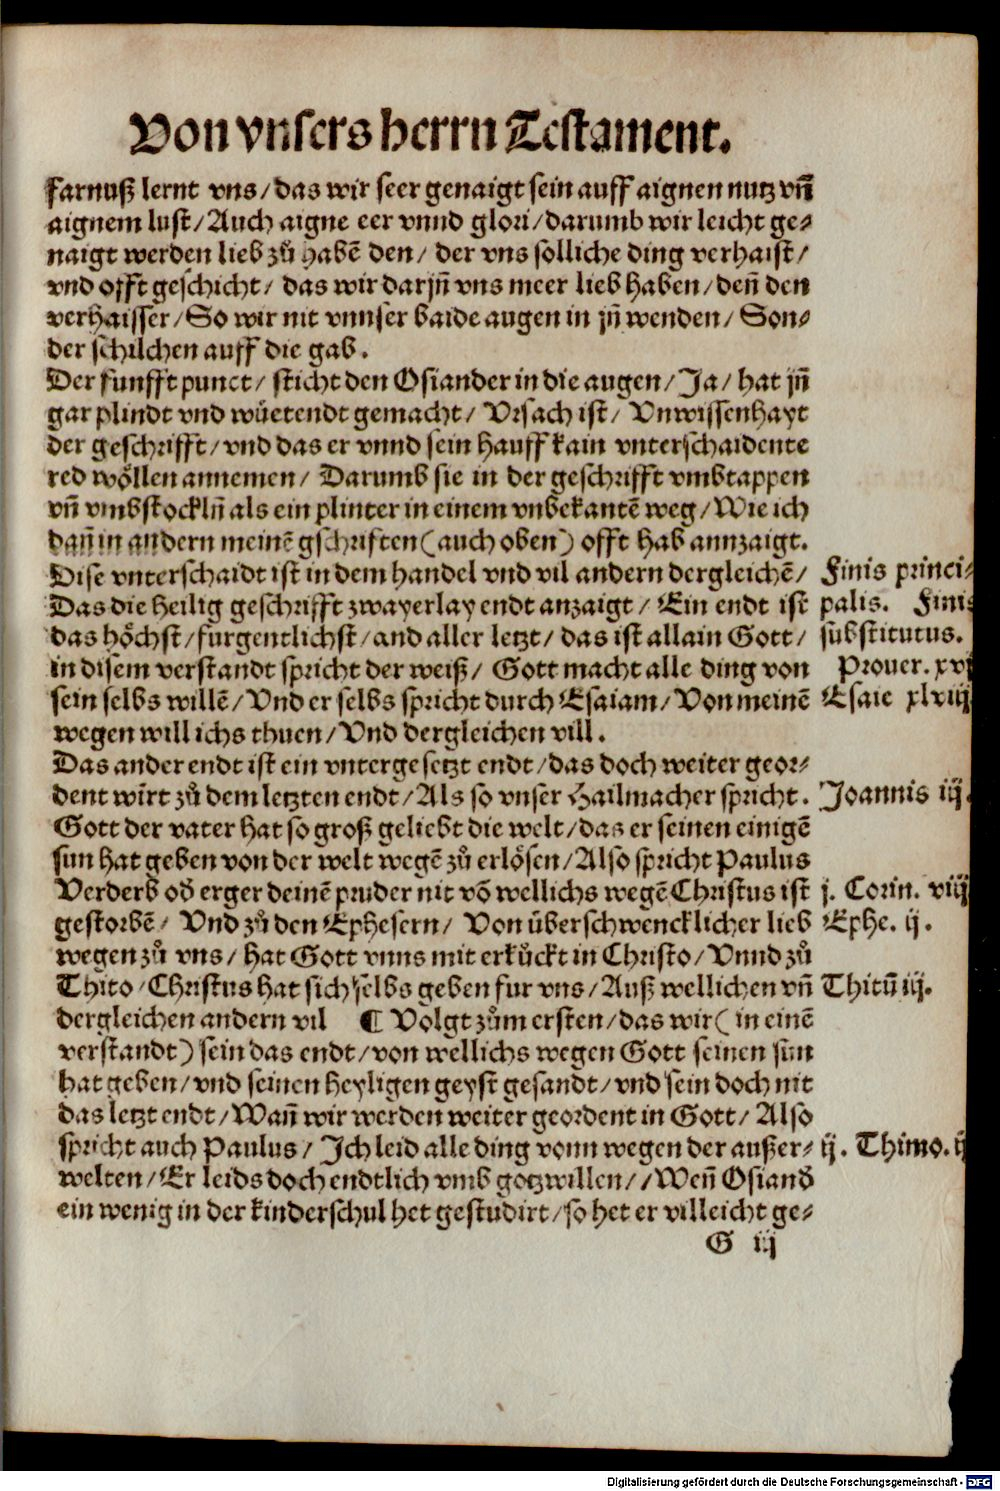 Von vnsers herrn Testament.
farnuß lernt vns/das wir seer genaigt sein auff aignen nutz vñ
aignem lust/Auch aigne eer vnnd glori/darumb wir leicht ge⸗
naigt werden lieb zů habẽ den/ der vns solliche ding verhaist/
vnd offt geschicht/ das wir darjñ vns meer lieb haben/deñ den
verhaisser/So wir nit vnnser baide augen in jñ wenden/ Son⸗
der schilchen auff die gab.
Der funfft punct/ sticht den Osiander in die augen/Ja/hat jñ
gar plindt vnd wüetendt gemacht/ Vrsach ist/ Vnwissenhayt
der geschrifft/vnd das er vnnd sein hauff kain vnterschaidente
red wöllen annemen/ Darumb sie in der geschrifft vmbtappen
vñ vmbstockln̄ als ein plinter in einem vnbekantẽ weg/Wie ich
dañ in andern meinẽ gschriften(auch oben) offt hab annzaigt.
Dise vnterschaidt ist in dem handel vnd vil andern dergleichẽ/ Finis princi⸗
Das die heilig geschrifft zwayerlay endt anzaigt/ Ein endt ist palis. Finis
das höchst/furgentlichst/and aller letzt/das ist allain Gott/ substitutus.
in disem verstandt spricht der weiß/ Gott macht alle ding von Prouer. xvj
sein selbs willẽ/Vnd er selbs spricht durch Esaiam/Von meinẽ Esaie xlviij
wegen will ichs thuen/Vnd dergleichen vill.
Das ander endt ist ein vntergesetzt endt/das doch weiter geor⸗
dent wirt zů dem letzten endt/Als so vnser Hailmacher spricht. Joannis iij.
Gott der vater hat so groß geliebt die welt/das er seinen einigẽ
sun hat geben von der welt wegẽ zů erlösen/Also spricht Paulus
Verderb od̓ erger deinẽ pruder nit võ wellichs wegẽ Christus ist j. Corin. viij
gestorbẽ/ Vnd zů den Ephesern/ Von überschwencklicher lieb Ephe. ij.
wegen zů vns/hat Gott vnns mit erkůckt in Christo/Vnnd zů
Thito/Christus hat sich selbs geben fur vns/Auß wellichen vñ Thitū iij.
dergleichen andern vil ¶ Volgt zům ersten/das wir(in einẽ
verstandt) sein das endt/von wellichs wegen Gott seinen sun
hat geben/vnd seinen heyligen geyst gesandt/vnd sein doch nit
das letzt endt/Wañ wir werden weiter geordent in Gott/ Also
spricht auch Paulus/ Ich leid alle ding vonn wegen der außer⸗ ij. Thimo. ij
welten/Er leids doch endtlich vmb gotzwillen//Weñ Osiand̓
ein wenig in der kinderschul het gestudirt/so het er villeicht ge⸗
G iij
Digitalisierung gefördert durch die Deutsche Forschungsgemeinschaft - DFG